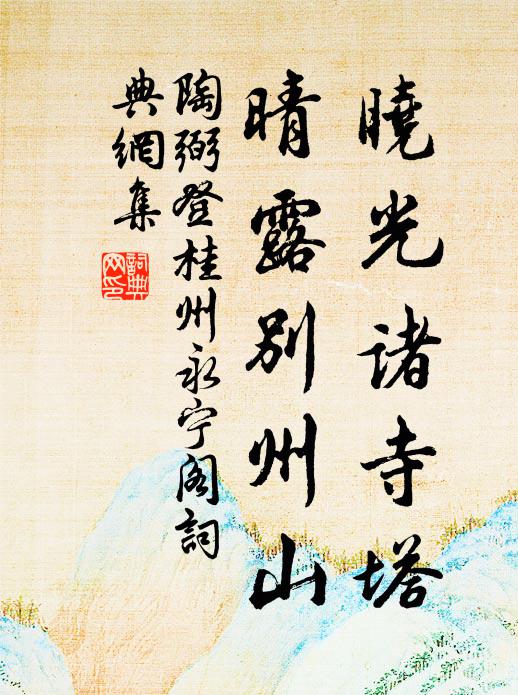 曉光諸寺塔
晴露別州山
陶弼登桂州永宁阁詞
典網集
詞典网印